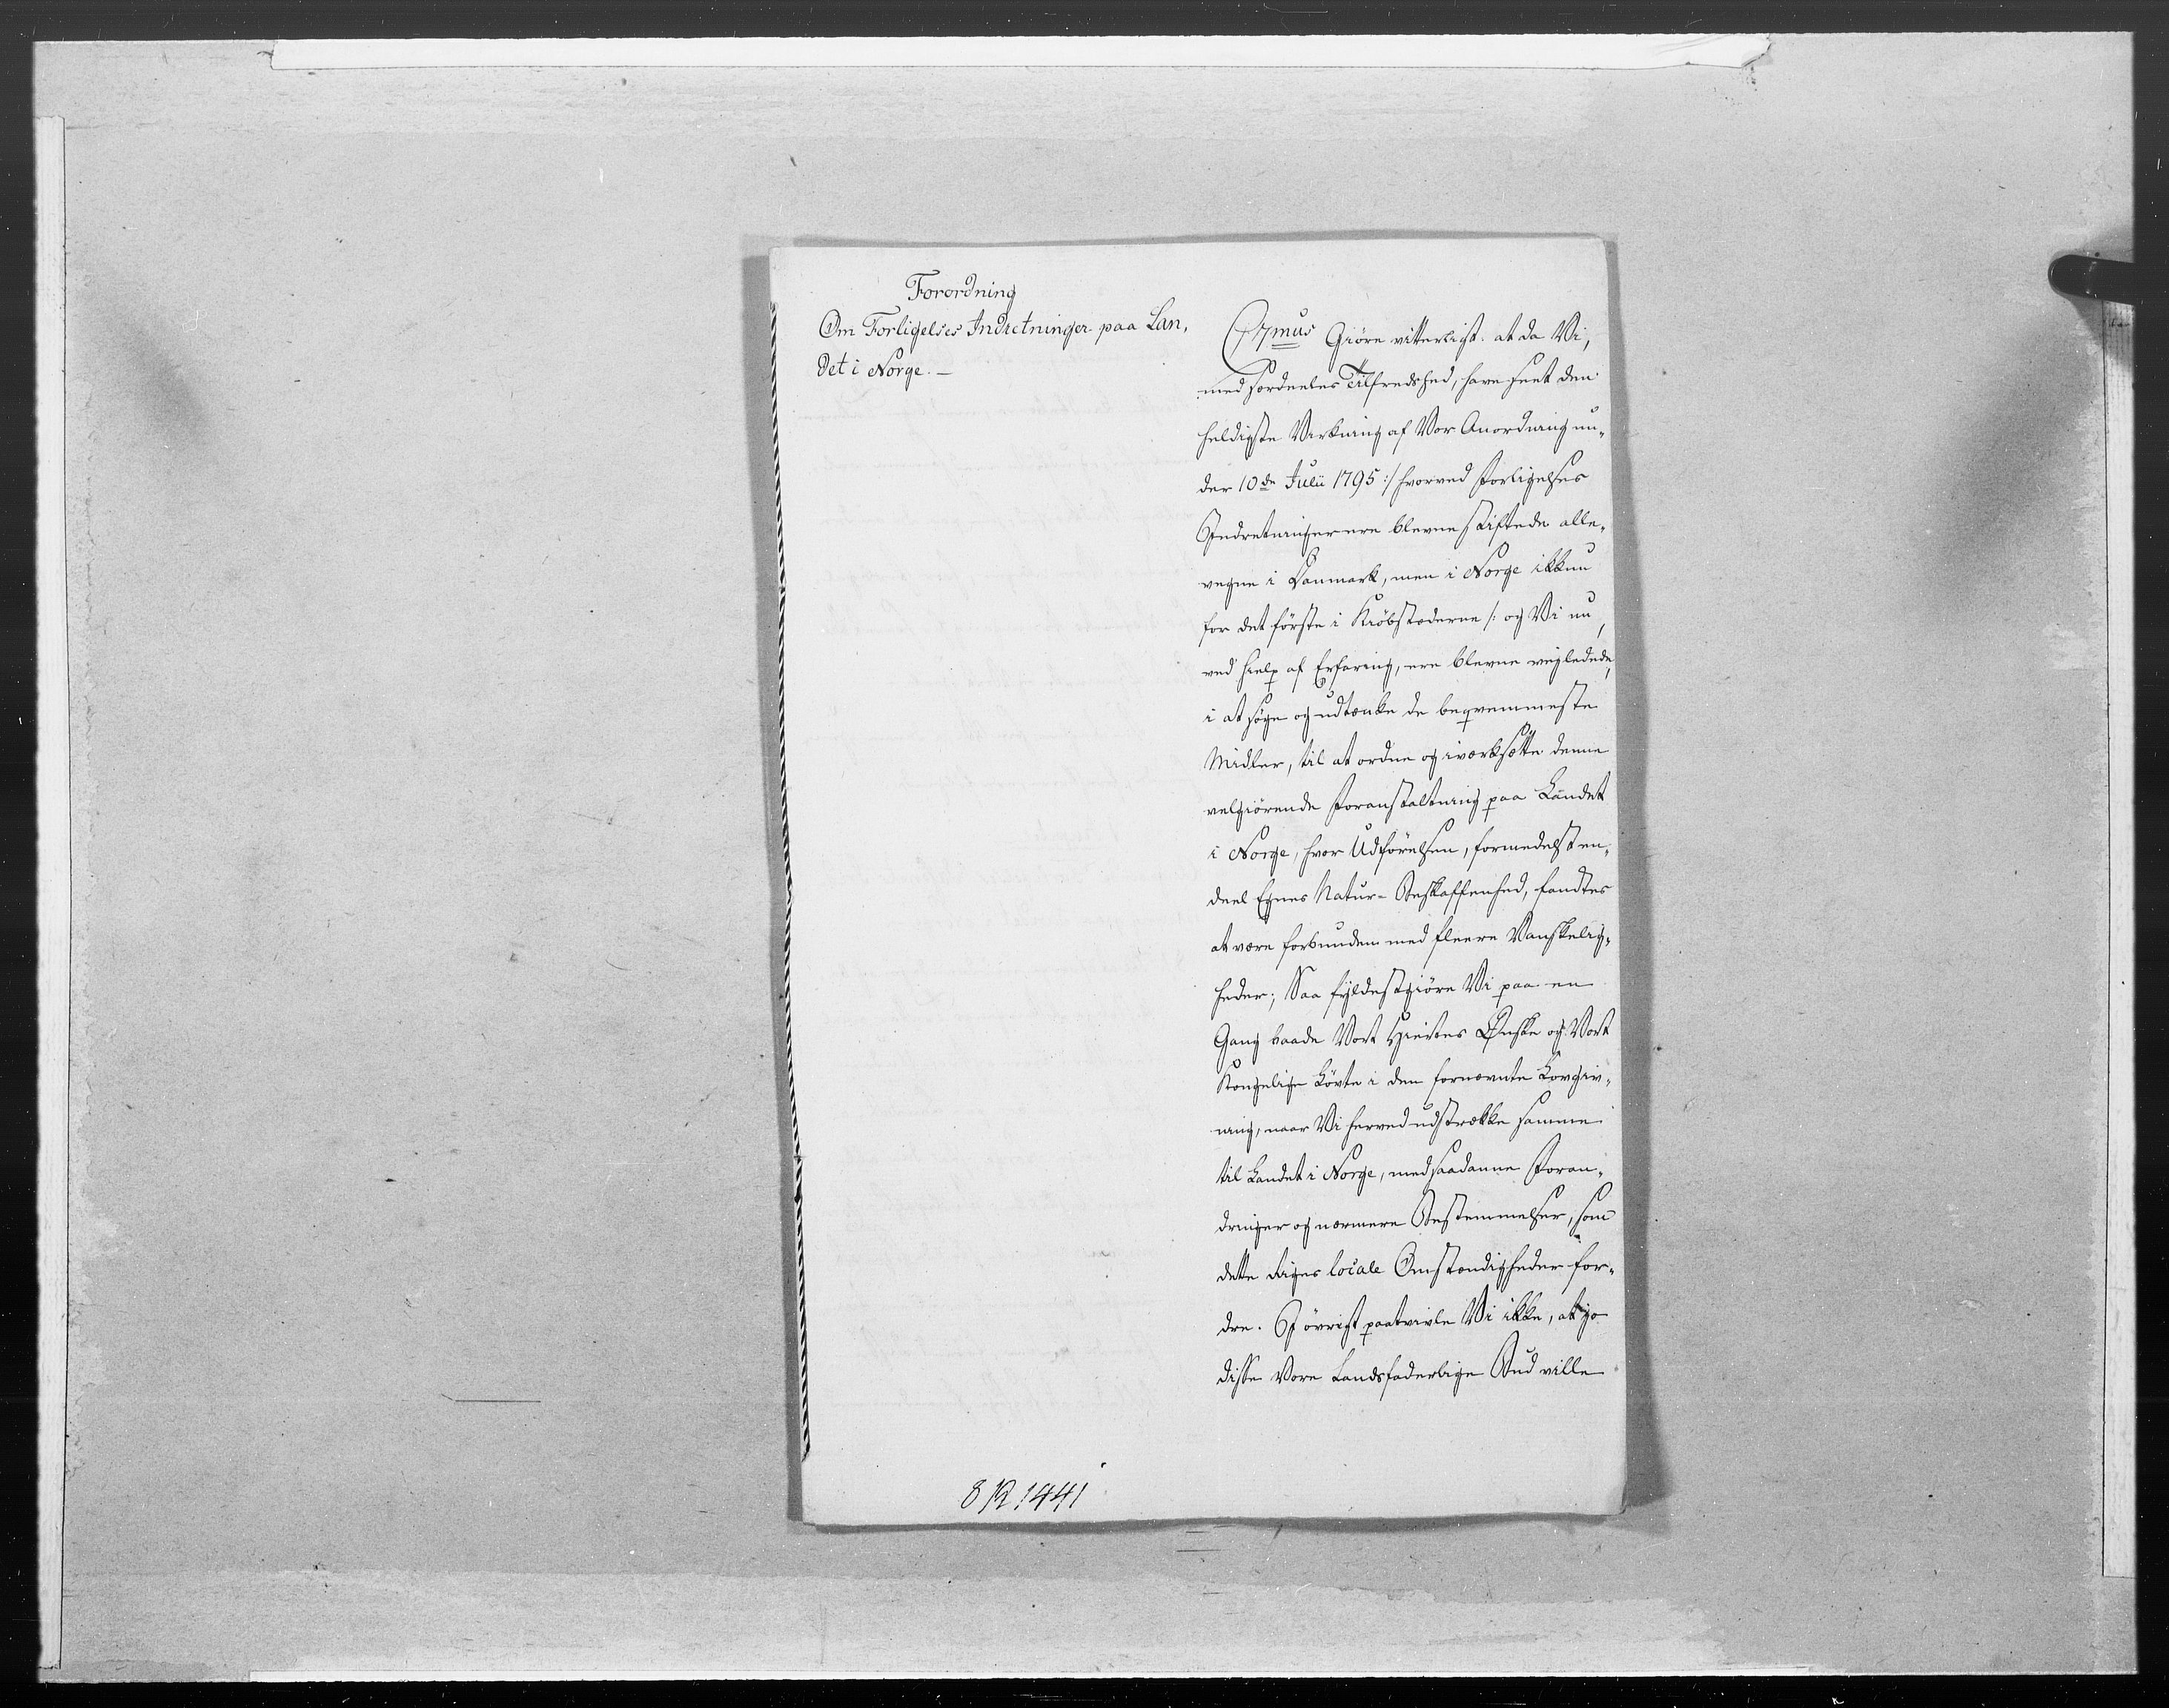 Forordning
Om Forligelses Indretninger paa Lan,
det i Norge. –
C7mus Giöre vitterligt: at da Vi,
med særdeeles Tilfredshed, have seet den
heldigste Virkning af Vor Anordning un,
der 10de Julii 1795 :/ hvorved Forligelses
Indretninger ere blevne stiftede alle,
vegne i Danmark, men i Norge ikkun
for det förste i Kiöbstæderne /: og Vi nu,
ved Hielp af Erfaring, ere blevne veyledede,
i at söge og udtænke de beqvemmeste
Midler, til at ordne og iværksætte denne
velgiörende Foranstaltning paa Landet
i Norge, hvor Udförelsen, formedelst en,
deel Egnes Natur-Beskaffenhed, fandtes
at være forbunden med fleere Vanskelig,
heder; Saa fyldestgiöre Vi paa en
Gang baade Vort Hiertes Ønske og Vort
Kongelige Lövte i den fornævnte Lovgiv,
ning, naar Vi herved udstrække samme
til Landet i Norge, med saadanne Foran,
dringer og nærmere Bestemmelser, som
dette Riges locale Omstændigheder for,
dre. I övrigt paatvivle Vi ikke, at jo
disse Vore Landsfaderlige Bud ville
8 R 1441